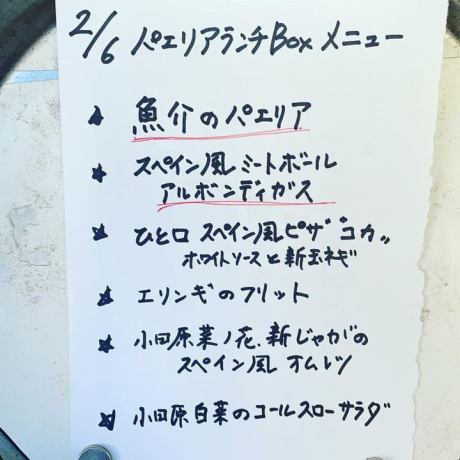 2/6 パエリアランチBox メニュー
★ 魚介のパエリア
★ スペイン風ミートボール
アルボンディガス
★ ひと口 スペイン風ピザ゛コカ〟
ホワイトソースと新玉ネギ
★ エリンギのフリット
★ 小田原菜ノ花、新じゃがの
スペイン風 オムレツ
★ 小田原白菜のコールスローサラダ